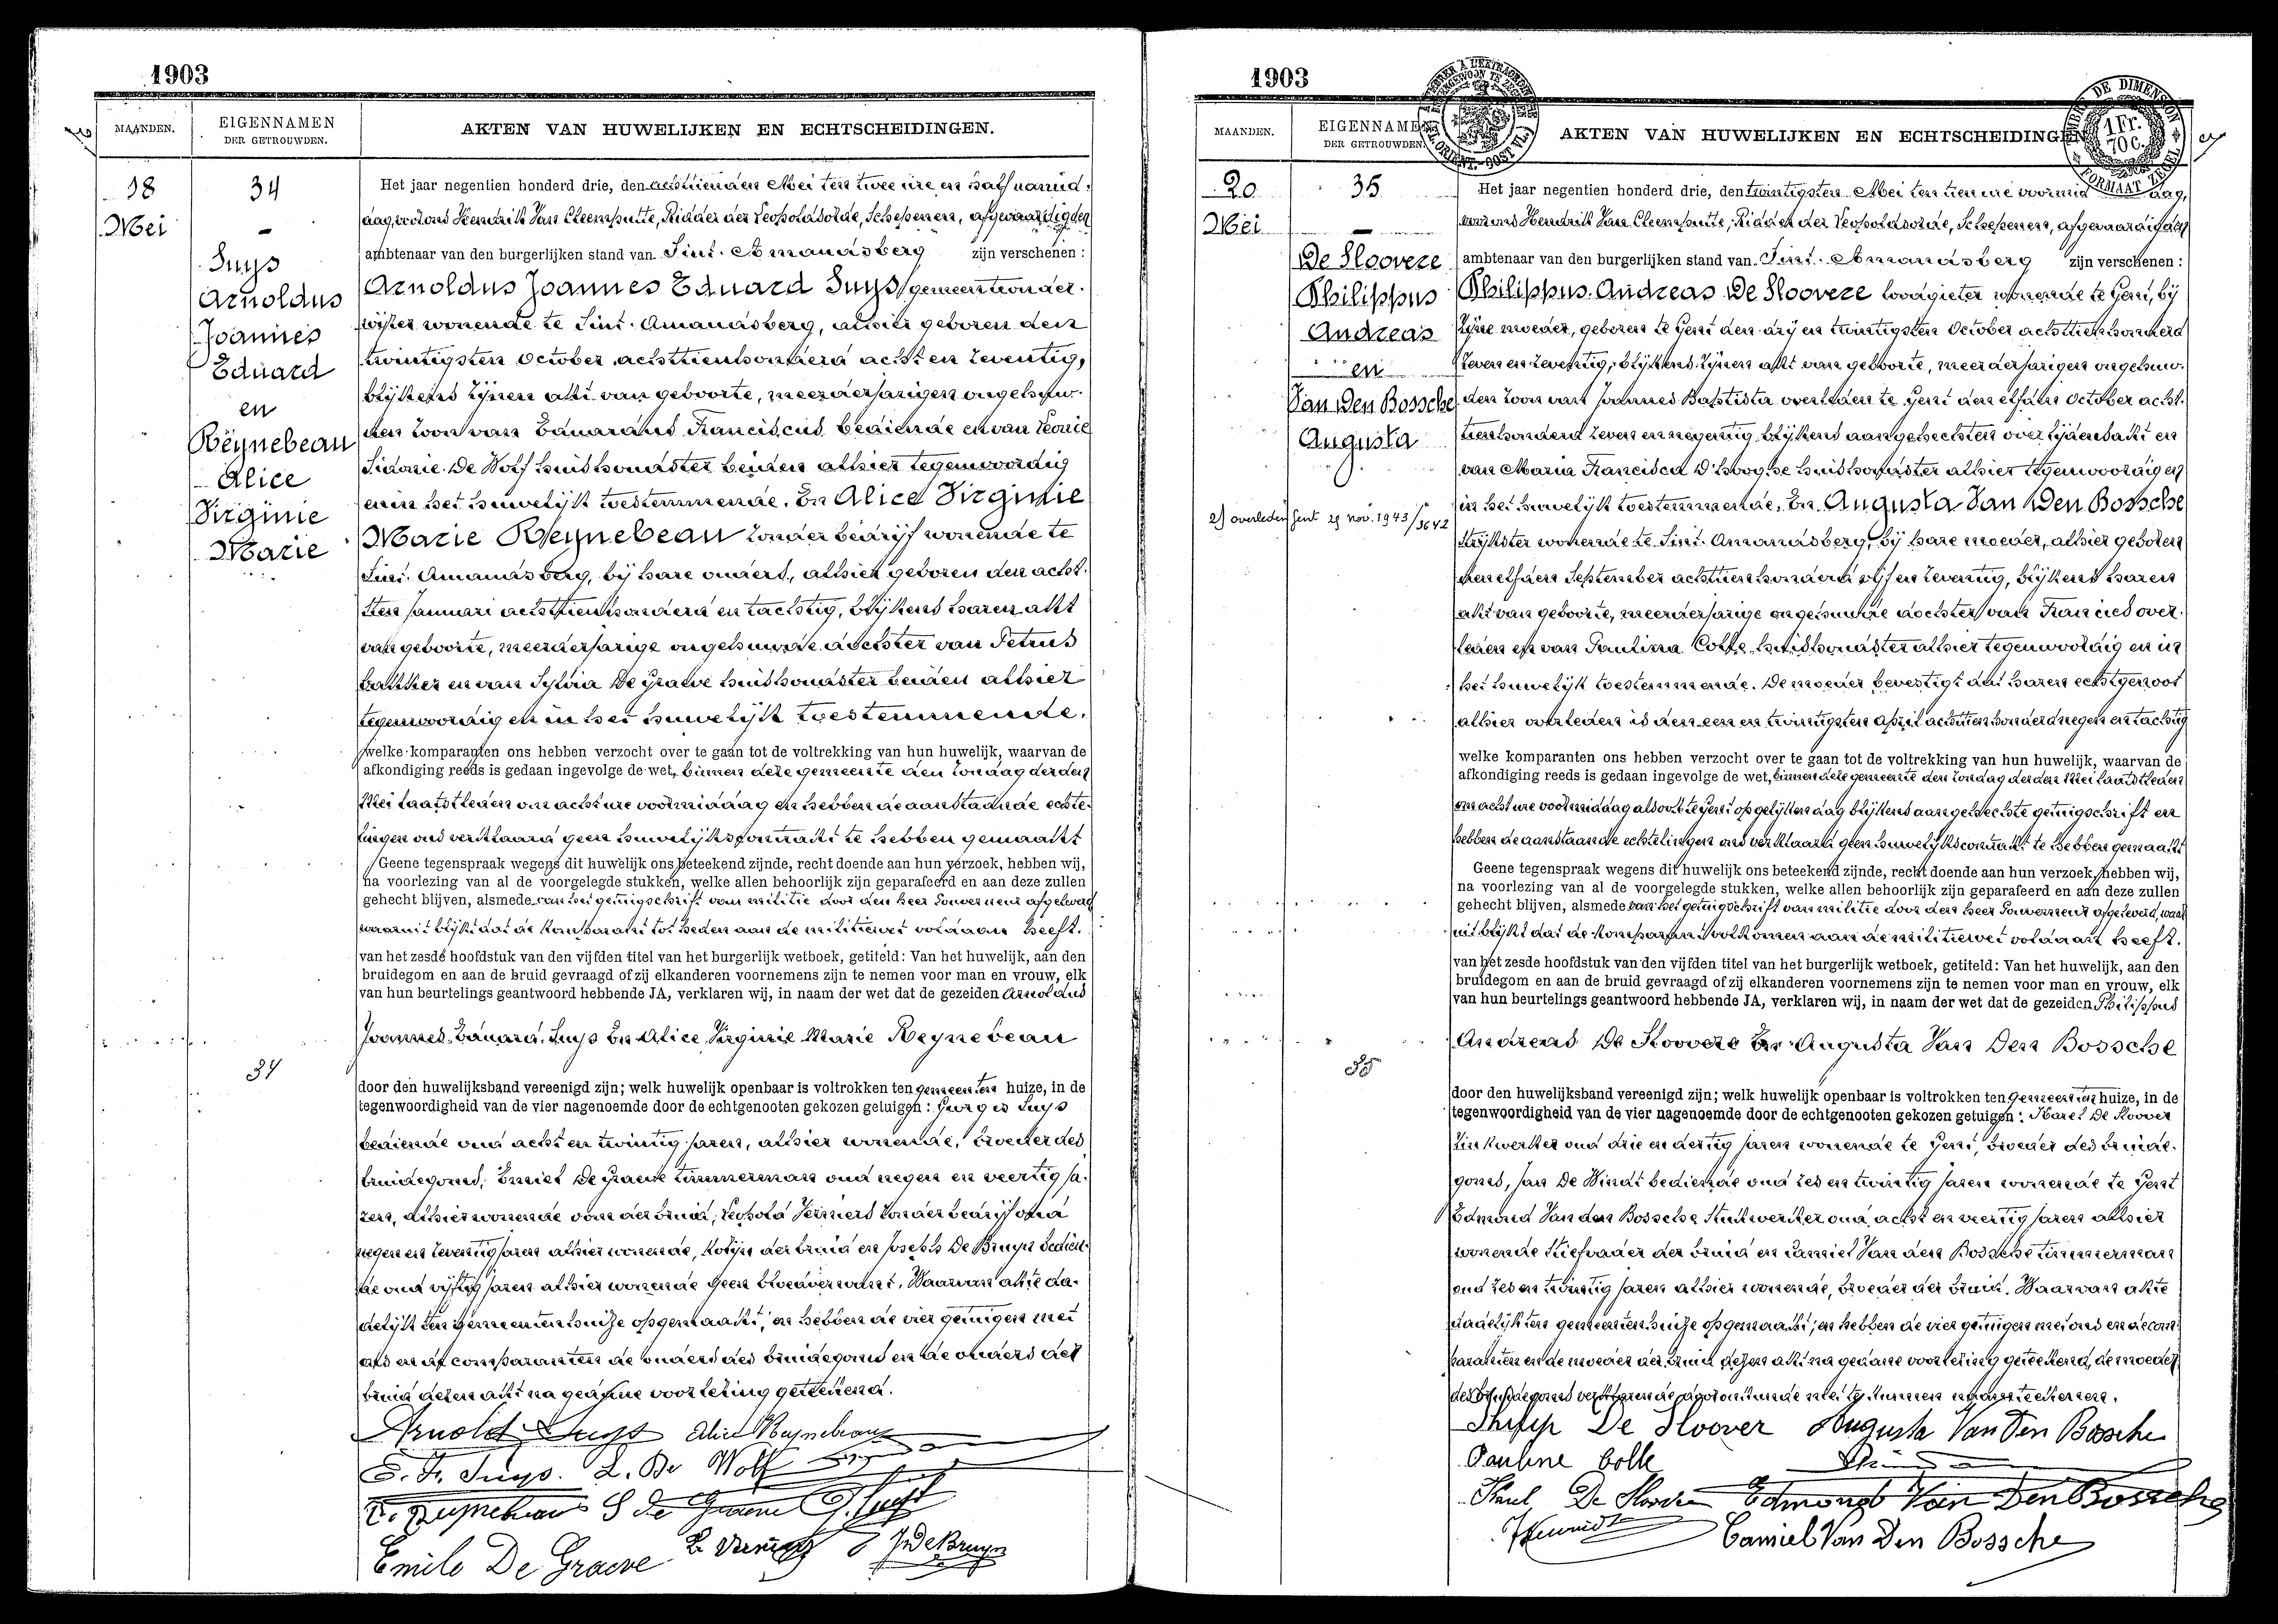 1903
MAANDEN.
EIGENNAMEN
DER GETROUWDEN.
AKTEN VAN HUWELIJKEN EN ECHTSCHEIDINGEN.
18
Mei
34
Suys
Arnoldus
Joannes
Eduard
en
Reynebeau
Alice
Virginie
Marie
Het jaar negentien honderd drie, den achttienden Mei ten twee ure en half namid-
dag, voor ons Hendrik Van Cleemputte, Ridder der Leopoldsorde, Schepenen, afgevaardigden
ambtenaar van den burgerlijken stand van Sint-Amandsberg zijn verschenen :
Arnoldus Joannes Eduard Suys gemeenteonder-
wijzer wonende te Sint-Amandsberg, alhier geboren den
twintigsten October achttienhonderd acht en zeventig,
blijkens zijnen akt van geboorte, meerderjarigen ongehuw-
den zoon van Eduardus Franciscus bediende en van Leonie
Sidonie De Wolf huishoudster beiden alhier tegenwoordig
en in het huwelijk toestemmende. En Alice Virginie
Marie Reynebeau zonder bedrijf wonende te
Sint-Amandsberg, bij hare ouders, alhier geboren den acht-
sten Januari achttienhonderd en tachtig, blijkens haren akt
van geboorte, meerderjarige ongehuwde dochter van Petrus
bakker en van Sylvia De Graeve huishoudster beiden alhier
tegenwoordig en in het huwelijk toestemmende.
welke komparanten ons hebben verzocht over te gaan tot de voltrekking van hun huwelijk, waarvan de
afkondiging reeds is gedaan ingevolge de wet, binnen deze gemeente den zondag derden
Mei laatstleden om acht ure voormiddag en hebben de aanstaande echte-
lingen ons verklaard geen huwelijkscontrakt te hebben gemaakt
Geene tegenspraak wegens dit huwelijk ons beteekend zijnde, recht doende aan hun verzoek, hebben wij,
na voorlezing van al de voorgelegde stukken, welke allen behoorlijk zijn geparafeerd en aan deze zullen
gehecht blijven, alsmede van het getuigschrift van militie door den heer Gouverneur afgeleverd
waaruit blijkt dat de komparant tot heden aan de militiewet voldaan heeft.
van het zesde hoofdstuk van den vijfden titel van het burgerlijk wetboek, getiteld: Van het huwelijk, aan den
bruidegom en aan de bruid gevraagd of zij elkanderen voornemens zijn te nemen voor man en vrouw, elk
van hun beurtelings geantwoord hebbende JA, verklaren wij, in naam der wet dat de gezeiden Arnoldus
Joannes Eduard Suys En Alice Virginie Marie Reynebeau
34
door den huwelijksband vereenigd zijn; welk huwelijk openbaar is voltrokken ten gemeenten huize, in de
tegenwoordigheid van de vier nagenoemde door de echtgenooten gekozen getuigen : Georges Suys
bediende oud acht en twintig jaren, alhier wonende, broeder des
bruidegoms, Emiel De Graeve timmerman oud negen en veertig ja-
ren, alhier wonende oom der bruid, Leopold zonder bedrijf oud
negen en zeventig jaren alhier wonende, der bruid en Joseph De Bruyn bedien-
de oud vijftig jaren alhier wonende geen bloedverwant. Waarvan akte da-
delijk ten gemeentenhuize opgemaakt, en hebben de vier getuigen met
ons en de comparanten de ouders des bruidegoms en de ouders der
bruid dezen akt na gedane voorlezing geteekend.
Arnold Suys Alice Reynebeau
E. Fr. Suys. L. De Wolf
P. Reynebeau S de Graeve G. Suys
Emile De Graeve J. De Bruyn
1903
MAANDEN.
EIGENNAMEN
DER GETROUWDEN.
AKTEN VAN HUWELIJKEN EN ECHTSCHEIDINGEN
DE DIMENSION
1 Fr.
70 C.
FORMAAT ZEGEL
20
Mei
35
De Sloovere
Philippus
Andreas
en
Van Den Bossche
Augusta
2) overleden Gent 29 nov. 1943/3642
Het jaar negentien honderd drie, den twintigsten Mei ten tien ure voormiddag,
voor ons Hendrik Van Cleemputte, Ridder der Leopoldsorde, Schepenen, afgevaardigden
ambtenaar van den burgerlijken stand van Sint-Amandsberg zijn verschenen :
Philippus Andreas De Sloovere loodgieter wonende te Gent, bij
zijne moeder, geboren te Gent den drij en twintigsten October achttienhonderd
zeven en zeventig, blijkens zijnen akt van geboorte, meerderjarigen ongehuw-
den zoon van Joannes Baptista overleden te Gent den elfden October acht-
tienhonderd zeven en negentig blijkens aangehechten overlijdensakt en
van Maria Francisca D'hooghe huishoudster alhier tegenwoordig en
in het huwelijk toestemmende, En Augusta Van Den Bossche
strijkster wonende te Sint-Amandsberg, bij hare moeder, alhier geboren
den elfden September achttienhonderd vijf en zeventig, blijkens haren
akt van geboorte, meerderjarige ongehuwde dochter van Francies over-
leden en van Paulina Colle huishoudster alhier tegenwoordig en in
het huwelijk toestemmende. De moeder bevestigt dat haren echtgenoot
alhier overleden is den een en twintigsten April achttienhonderd negen en tachtig
welke komparanten ons hebben verzocht over te gaan tot de voltrekking van hun huwelijk, waarvan de
afkondiging reeds is gedaan ingevolge de wet, binnen deze gemeente den zondag derden Mei laatstleden
om acht ure voormiddag alsook te Gent op gelijken dag blijkens aangehechte getuigschrift en
hebben de aanstaande echtelingen ons verklaard geen huwelijkscontrakt te hebben gemaakt
Geene tegenspraak wegens dit huwelijk ons beteekend zijnde, recht doende aan hun verzoek, hebben wij,
na voorlezing van al de voorgelegde stukken, welke allen behoorlijk zijn geparafeerd en aan deze zullen
gehecht blijven, alsmede van het getuigschrift van militie door den heer Gouverneur afgeleverd, waar-
uit blijkt dat de komparant volkomen aan de militiewet voldaan heeft.
van het zesde hoofdstuk van den vijfden titel van het burgerlijk wetboek, getiteld: Van het huwelijk, aan den
bruidegom en aan de bruid gevraagd of zij elkanderen voornemens zijn te nemen voor man en vrouw, elk
van hun beurtelings geantwoord hebbende JA, verklaren wij, in naam der wet dat de gezeiden Philippus
Andreas De Sloovere En Augusta Van Den Bossche
35
door den huwelijksband vereenigd zijn; welk huwelijk openbaar is voltrokken ten gemeenten huize, in de
tegenwoordigheid van de vier nagenoemde door de echtgenooten gekozen getuigen : Karel De Sloover
zinkwerker oud drie en dertig jaren wonende te Gent, broeder des bruide-
goms, Jan De Windt bediende oud zes en twintig jaren wonende te Gent
Edmond Van den Bossche stukwerker oud acht en veertig jaren alhier
wonende stiefvader der bruid en Camiel Van den Bossche timmerman
oud zes en twintig jaren alhier wonende, broeder der bruid. Waarvan akte
dadelijk ten gemeentenhuize opgemaakt, en hebben de vier getuigen met ons en de com-
paranten en de moeder der bruid dezen akt na gedane voorlezing geteekend, de moeder
des bruidegoms verklarende niet te kunnen teekenen.
Philip De Sloover Augusta Van Den Bossche
Pauline Colle
Karel De Sloover Edmond Van Den Bossche
Camiel Van Den Bossche